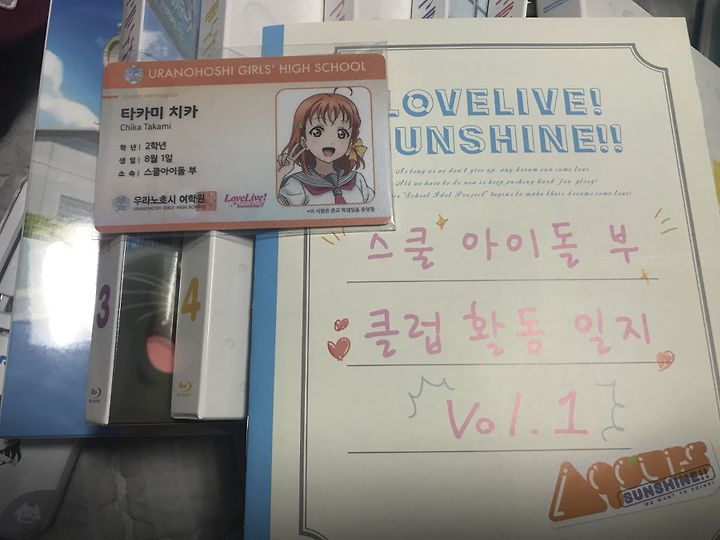 URANOHOSHI GIRLS' HIGH SCHOOL
타카미 치카
Chika Takami
학 년 | 2학년
생 일 | 8월 1일
소 속 | 스쿨아이돌 부
우라노호시 여학원
URANOHOSHI GIRLS' HIGH SCHOOL
LoveLive!
Sunshine!!
*이 사람은 본교 학생임을 증명함
LOVELIVE!
SUNSHINE!!
As long as we don't give up, any dream can come true
All we have to do now is keep pushing hard, for glory!
"School Idol Project" begins to make these dreams come true!
스쿨 아이돌 부
클럽 활동 일지
Vol.1
Aqours
SUNSHINE!!
WE WANT TO SHINE!
3
4